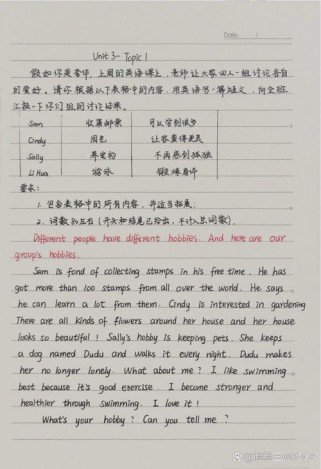 Date. /
Unit 3- Topic 1
假如你是李华,上周的英语课上,老师让大家四人一组讨论各自
的爱好。请你根据以下表格中的内容,用英语写一篇短文,向全班
汇报一下你们组的讨论结果。
Sam 收集邮票 可以学到很多
Cindy 园艺 让家变得更美
Sally 养宠物 不再感到孤独
Li Hua 游泳 锻炼身体
要求:
1. 包含表格中的所有内容,并适当拓展;
2. 词数80左右(开头和结尾已给出,不计入总词数)。
Different people have different hobbies. And here are our
group's hobbies.
Sam is fond of collecting stamps in his free time. He has
got more than 100 stamps from all over the world. He says
he can learn a lot from them. Cindy is interested in gardening
There are all kinds of flowers around her house and her house
looks so beautiful! Sally's hobby is keeping pets. She keeps
a dog named Dudu and walks it every night. Dudu makes
her no longer lonely. What about me? I like swimming
best because it's good exercise. I become stronger and
healthier through swimming. I love it!
What's your hobby? Can you tell me?